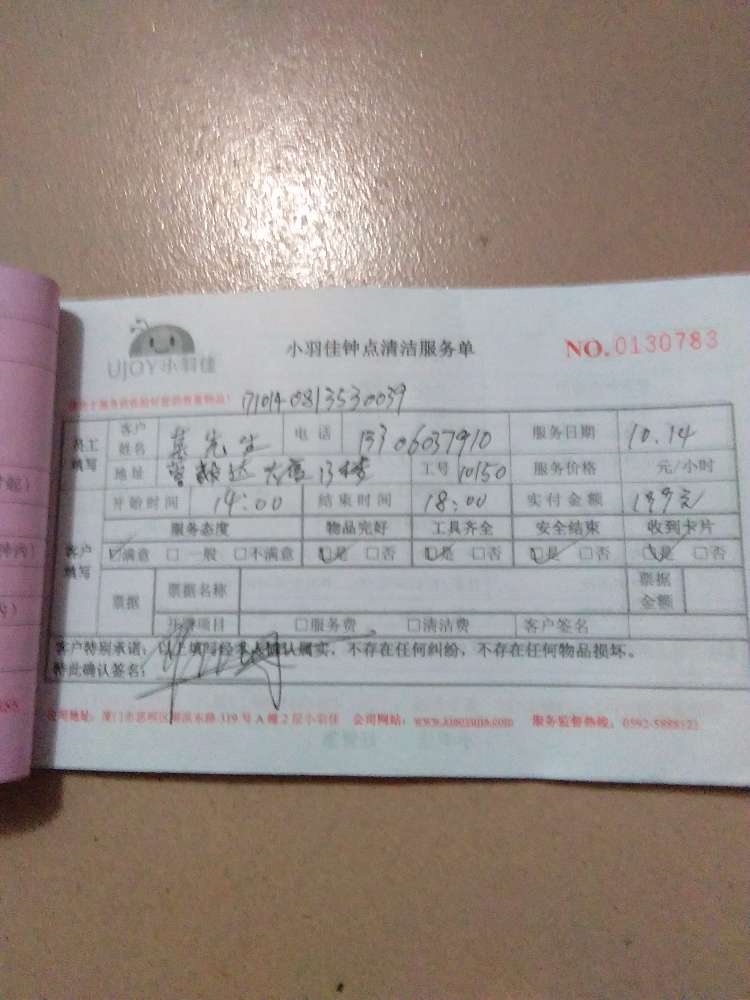 UJOY小羽佳
小羽佳钟点清洁服务单
NO.0130783
171014 0813530039
员工填写 客户姓名 先生 电话 13306037910 服务日期 10.14
地址 大厦13楼 工号 10150 服务价格 元/小时
开始时间 14:00 结束时间 18:00 实付金额 199元
客户填写 服务态度 物品完好 工具齐全 安全结束 收到卡片
☑满意 □一般 □不满意 ☑是 □否 ☑是 □否 ☑是 □否 ☑是 □否
票据 票据名称 票据金额
开票项目 □服务费 □清洁费 客户签名
客户特别承诺:以上填写经本人确认属实,不存在任何纠纷,不存在任何物品损坏。
特此确认签名:
公司地址:厦门市思明区 东路319号A幢2层小羽佳 公司网站: 服务监督热线: